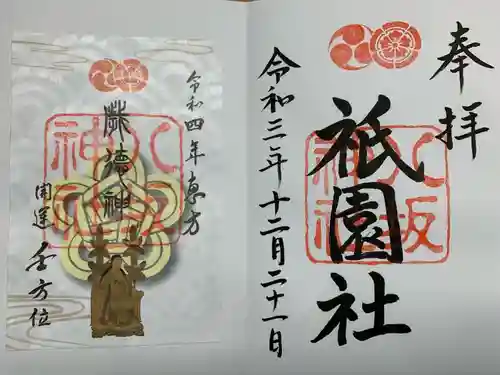 奉拝
八坂神社
祇園社
令和三年十二月二十一日
令和四年恵方
歳徳神
八坂神社
開運壬方位